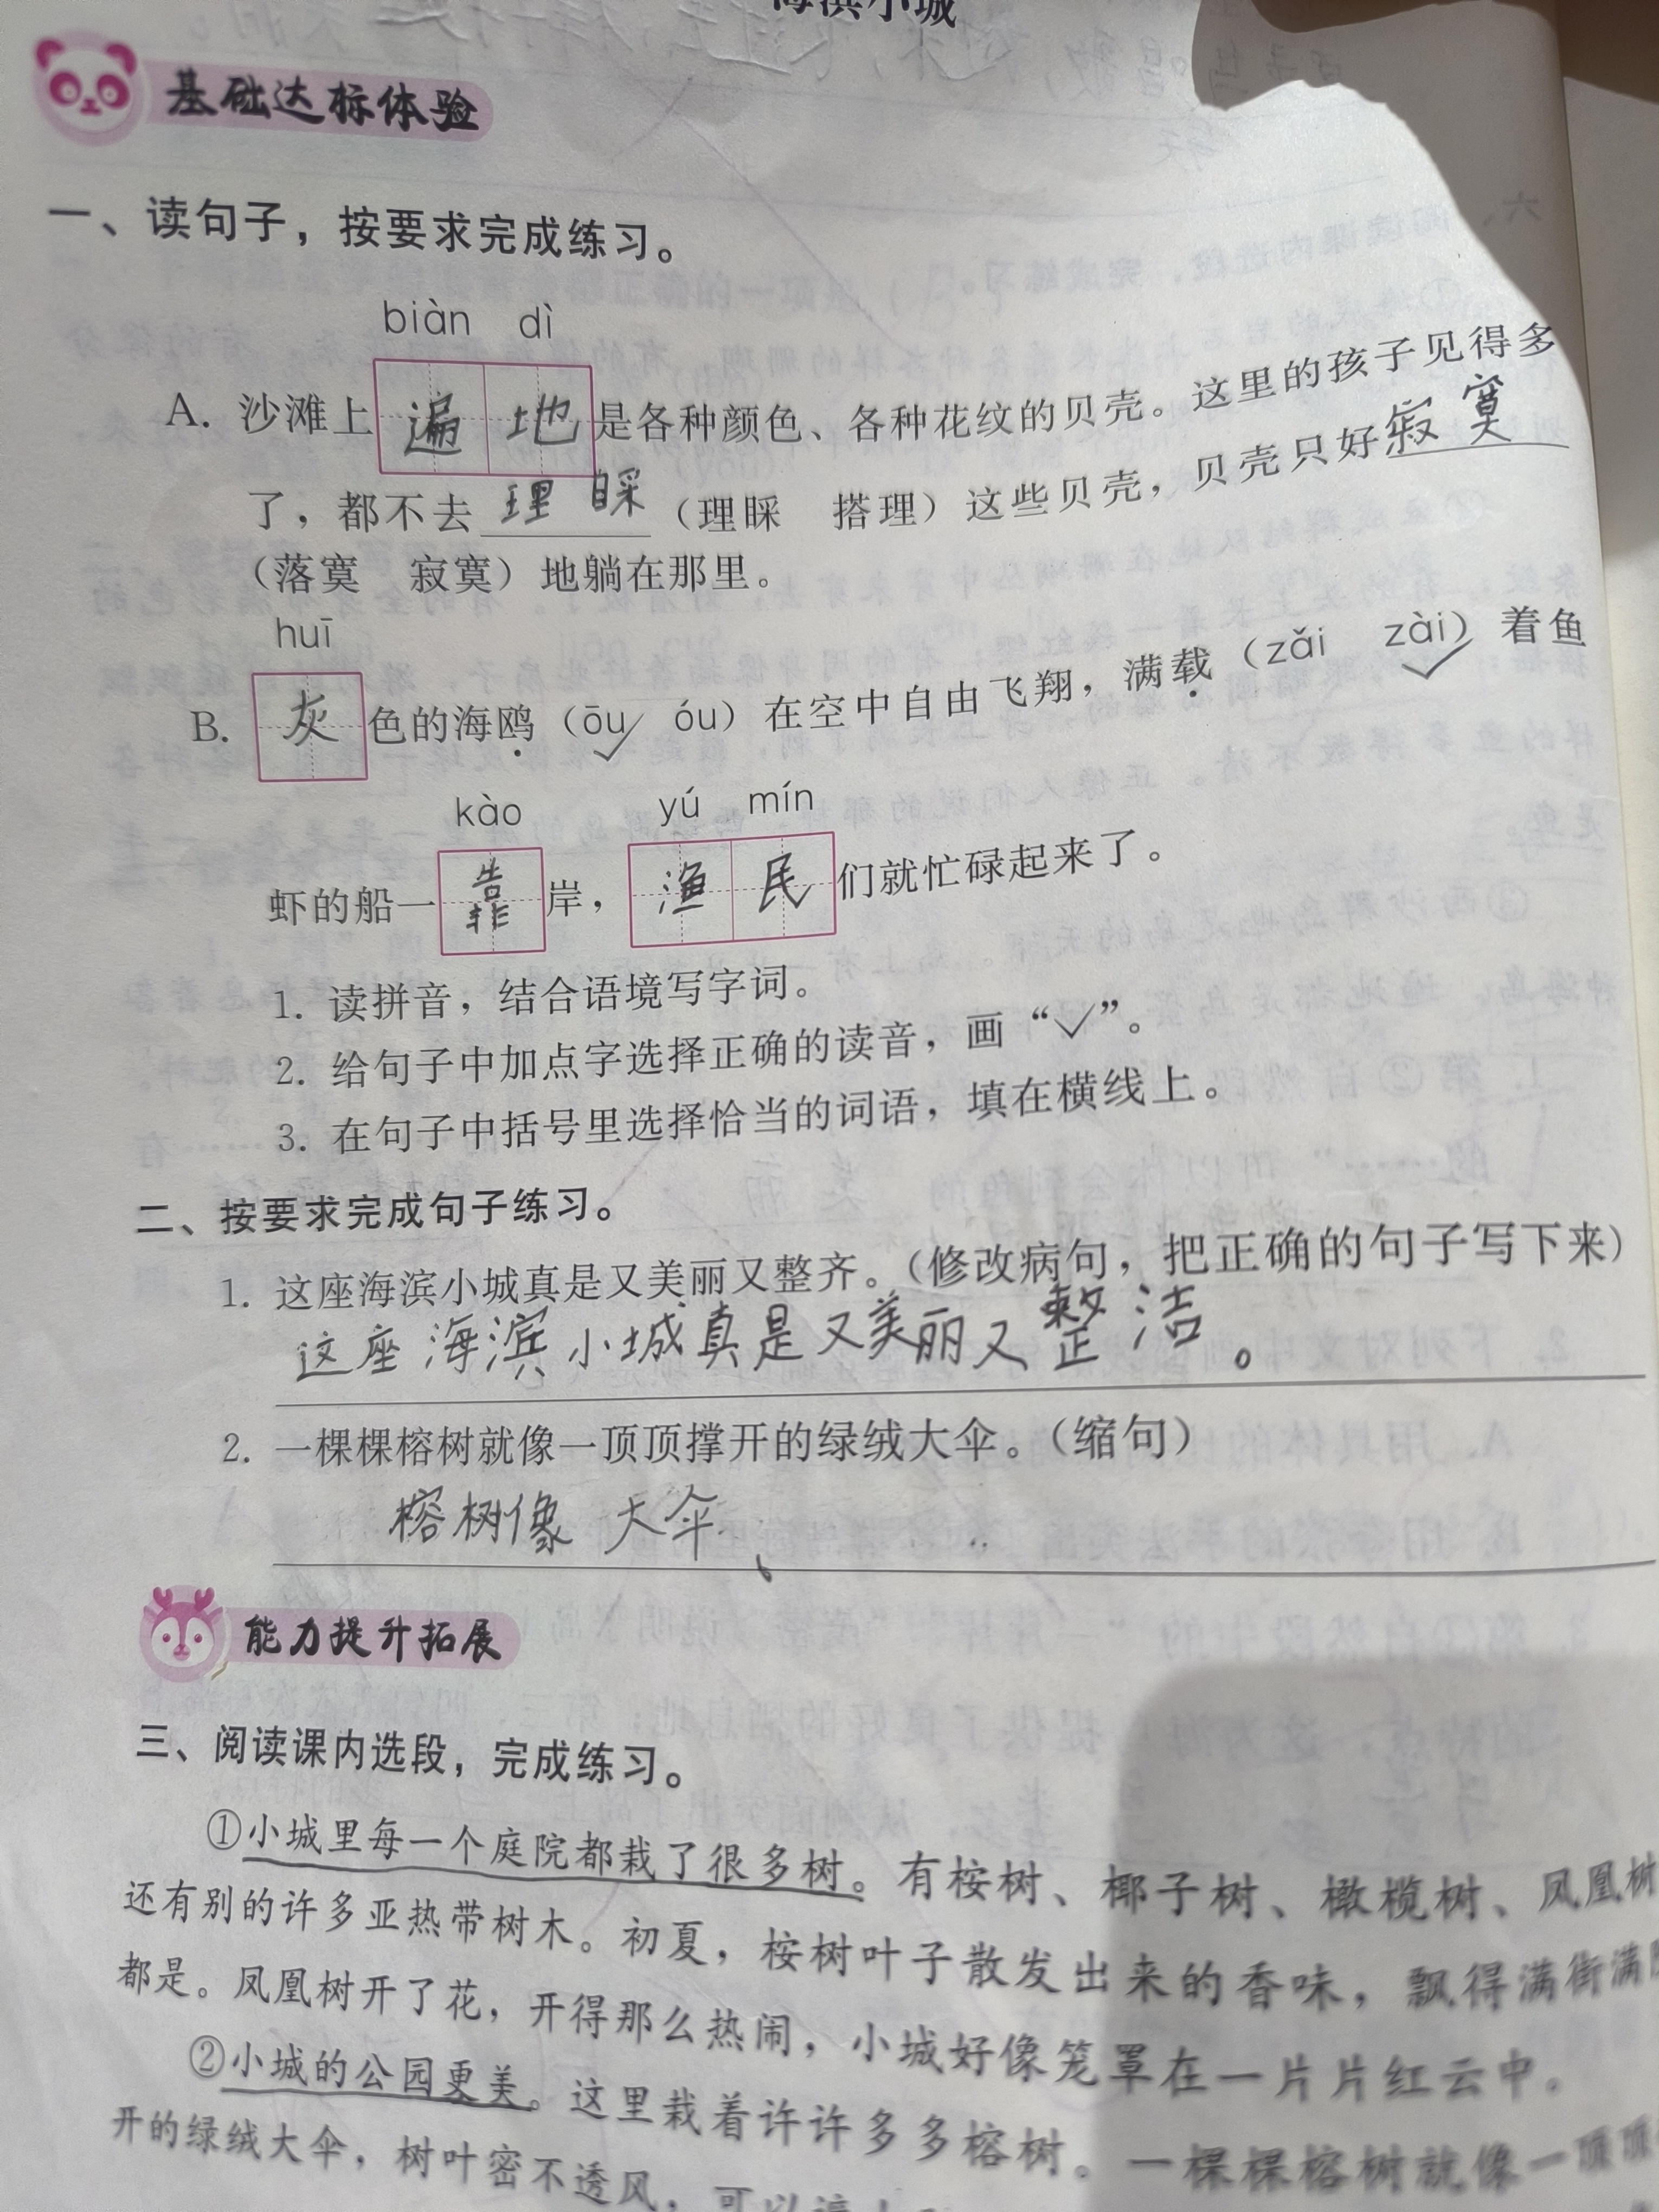 海滨小城
基础达标体验
一、读句子，按要求完成练习。
biàn dì
A. 沙滩上遍地是各种颜色、各种花纹的贝壳。这里的孩子见得多
了，都不去理睬（理睬 搭理）这些贝壳，贝壳只好寂寞
（落寞 寂寞）地躺在那里。
huī
B. 灰色的海鸥（ōu✓ óu）在空中自由飞翔，满载（zǎi zài✓）着鱼
kào yú mín
虾的船一靠岸，渔民们就忙碌起来了。
1. 读拼音，结合语境写字词。
2. 给句子中加点字选择正确的读音，画“✓”。
3. 在句子中括号里选择恰当的词语，填在横线上。
二、按要求完成句子练习。
1. 这座海滨小城真是又美丽又整齐。（修改病句，把正确的句子写下来）
这座海滨小城真是又美丽又整洁。
2. 一棵棵榕树就像一顶顶撑开的绿绒大伞。（缩句）
榕树像大伞
能力提升拓展
三、阅读课内选段，完成练习。
①小城里每一个庭院都栽了很多树。有桉树、椰子树、橄榄树、凤凰树
还有别的许多亚热带树木。初夏，桉树叶子散发出来的香味，飘得满街满
都是。凤凰树开了花，开得那么热闹，小城好像笼罩在一片片红云中。
②小城的公园更美。这里栽着许许多多榕树。一棵棵榕树就像一顶顶
开的绿绒大伞，树叶密不透风，可以